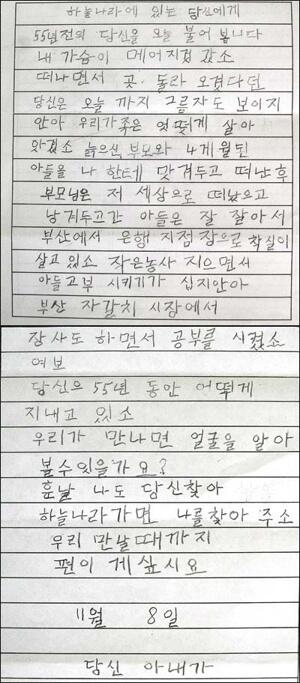 하늘나라에 있는 당신에게
55년전의 당신을 오늘 불어 봅니다
내 가슴이 메어지겁 갔소
떠나면서 곳. 돌라 오겠다던
당신은 오늘 까지 그름자도 보이지
안아 우리가족은 엇떻게 살아
와겠소 늙으신 부모와 4게월된
아들을 나 한테 맛겨두고 떠난후
부모님은 저 세상으로 떠났으고
남겨두고간 아들은 잘 잘아서
부산에서 은행 지점장으로 착실이
살고 있소 작은농사 지으면서
아들고부 시키기가 십지안아
부산 자갈치 시장에서
장사도 하면서 공부를 시켰소
여보
당신으 55년 동안 어떻게
지내고 있소
우리가 만나면 얼굴을 알아
볼수있을가요?
훗날 나도 당신찾아
하늘나라가면 나를찾아 주소
우리 만날때까지
편이 게싶시요
11월 8일
당신 아내가